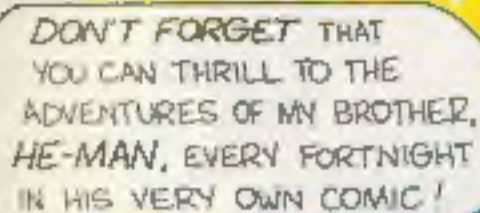 DON'T FORGET THAT
YOU CAN THRILL TO THE
ADVENTURES OF MY BROTHER,
HE-MAN, EVERY FORTNIGHT
IN HIS VERY OWN COMIC!